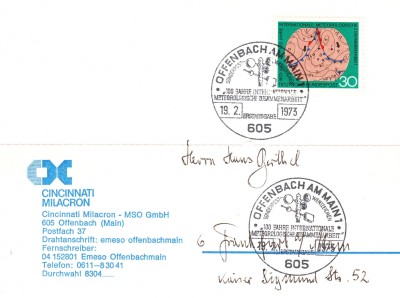 100 JAHRE INTERNATIONALE METEOROLOGISCHE ZUSAMMENARBEIT
DEUTSCHE BUNDESPOST
30
OFFENBACH AM MAIN 1
100 JAHRE INTERNATIONALE
METEOROLOGISCHE ZUSAMMENARBEIT
19.2. 1973
ERSTAUSGABE
605
Herrn Hans
CINCINNATI
MILACRON
Cincinnati Milacron - MSO GmbH
605 Offenbach (Main)
Postfach 37
Drahtanschrift: emeso offenbachmain
Fernschreiber:
04 152801 Emeso Offenbachmain
Telefon: 0611-83041
Durchwahl 8304......
OFFENBACH AM MAIN 1
100 JAHRE INTERNATIONALE
METEOROLOGISCHE ZUSAMMENARBEIT
605
6 Frankfurt / Main
Kaiser Sigmund Str. 52